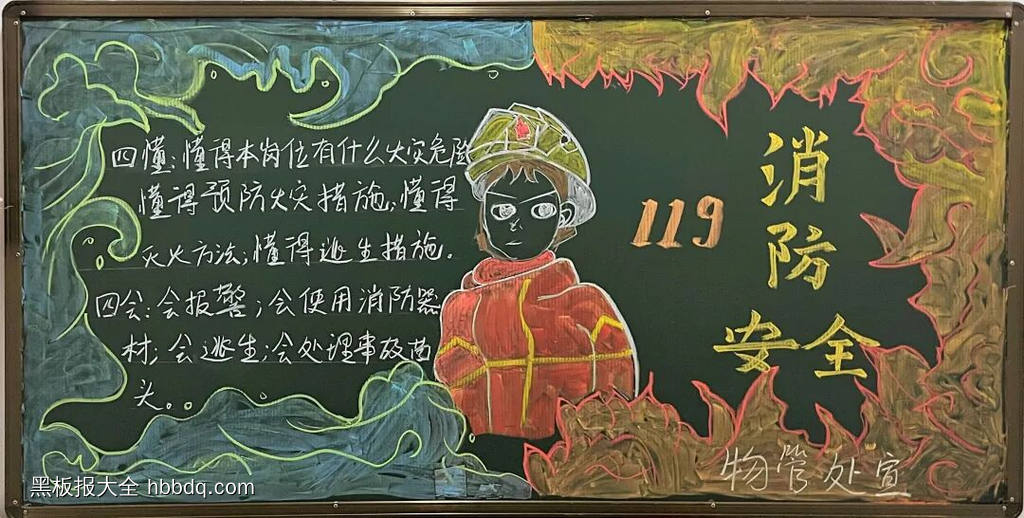 四懂:懂得本岗位有什么火灾危险
懂得预防火灾措施;懂得
灭火方法;懂得逃生措施。
四会:会报警;会使用消防器
材;会逃生;会处理事故苗
头。
119
消
防
安全
物管处宣
黑板报大全 hbbdq.com